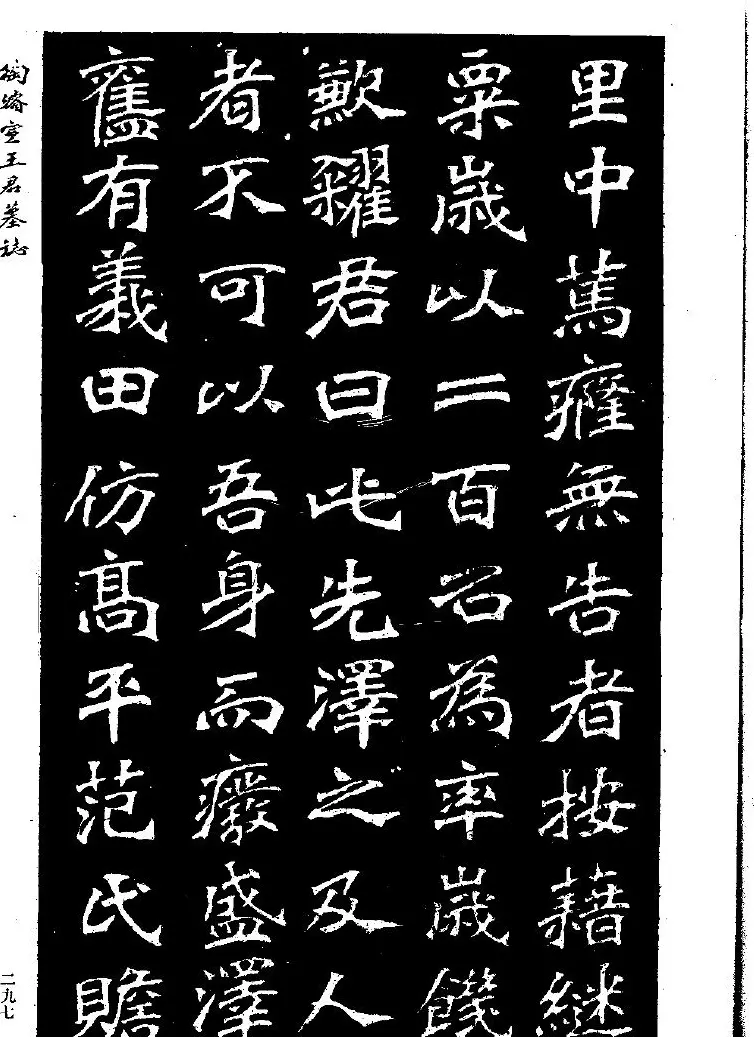 里中篤癃無告者按藉繼
粟歲以二百石為率歲饑
歉糴君曰此先澤之及人
者不可以吾身而癈盛澤
舊有義田仿高平范氏贍
陶濬宣王君墓誌
二九七